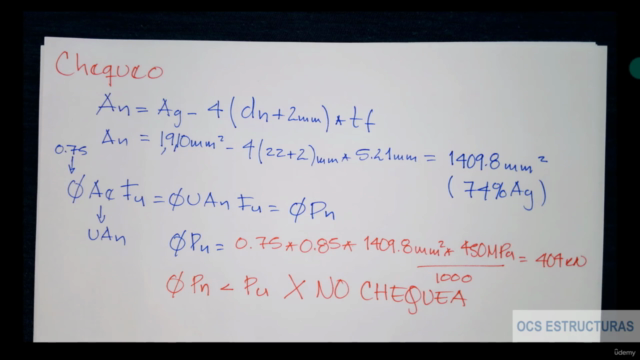 Chequeo
An = Ag - 4(dn+2mm)*tf
An = 1,910mm² - 4(22+2)mm * 5.21mm = 1409.8mm²
(74%Ag)
0.75
ØAeFu = ØUAnFu = ØPn
UAn
ØPn = 0.75*0.85* 1409.8mm² * 450MPa / 1000 = 404kN
ØPn < Pu X NO CHEQUEA
OCS ESTRUCTURAS
ûdemy